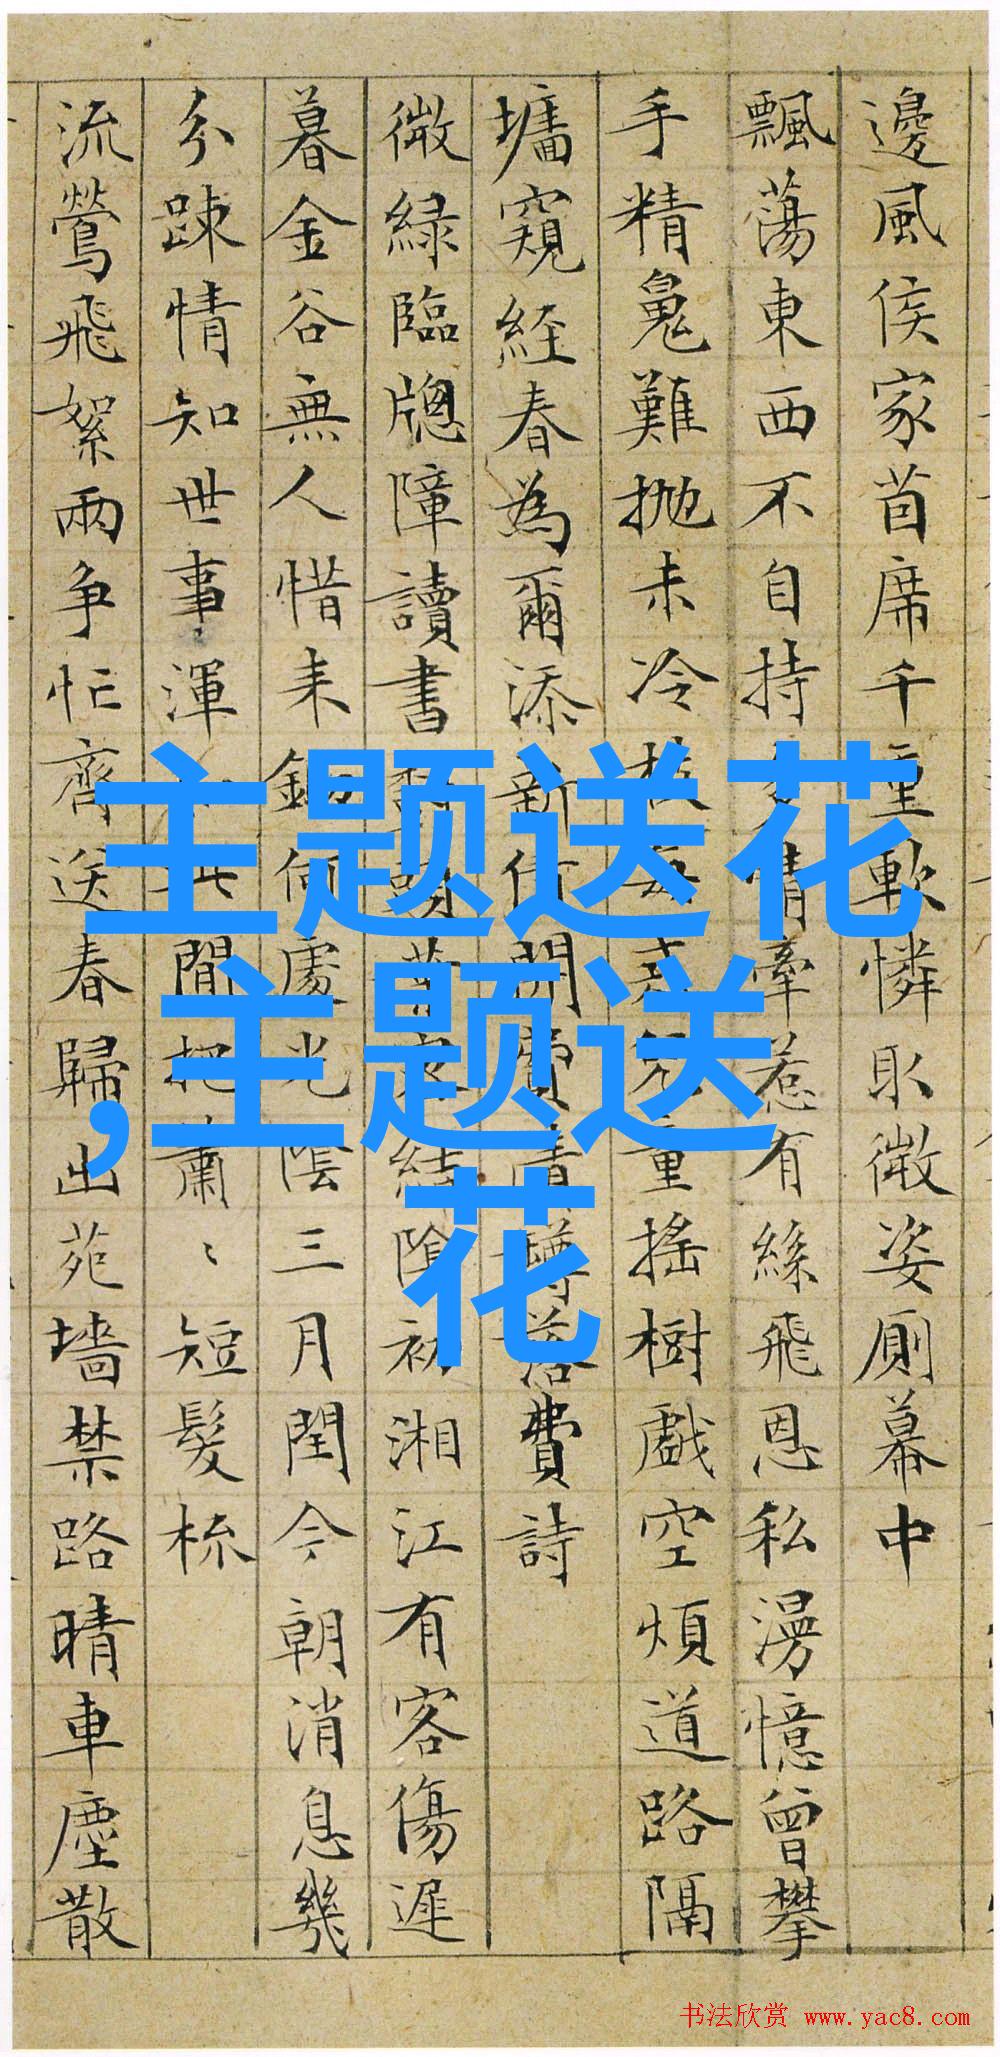 邊風侯家茵席千重軟憐取微姿廁幕中
飄蕩東西不自持 情牽惹有絲飛恩私漫憶曾攀
手精魂難拋未冷 重搖樹戲空煩道路隔
墉窺經春為爾添新 開 樽落費詩
微綠臨牕障讀書 結陰初湘江有客傷遲
暮金谷無人惜来 何處光陰三月閏今朝消息幾
分踈情知世事渾 閒把肅〻短髮梳
流鶯飛絮兩争忙齊送春歸出苑墻禁路晴車塵散
主题送花
,主题送
花
书法欣赏 www.yac8.com